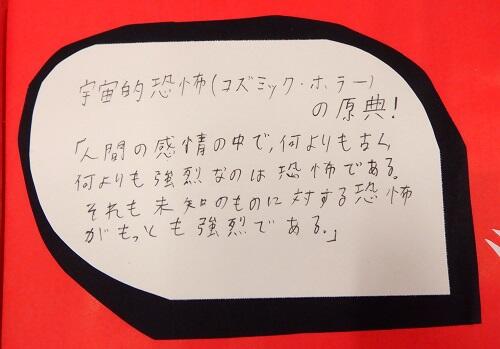 宇宙的恐怖(コズミック・ホラー)
の原典!
「人間の感情の中で,何よりも古く,
何よりも強烈なのは恐怖である。
それも未知のものに対する恐怖
がもっとも強烈である。」